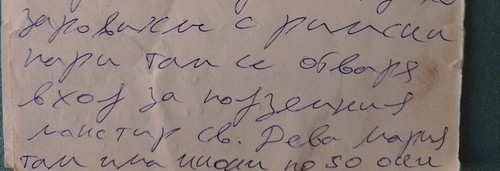 заровихме с римски
пари там се отваря
вход за подземния
манстир св. Дева Мария
там има икони по 50 оки